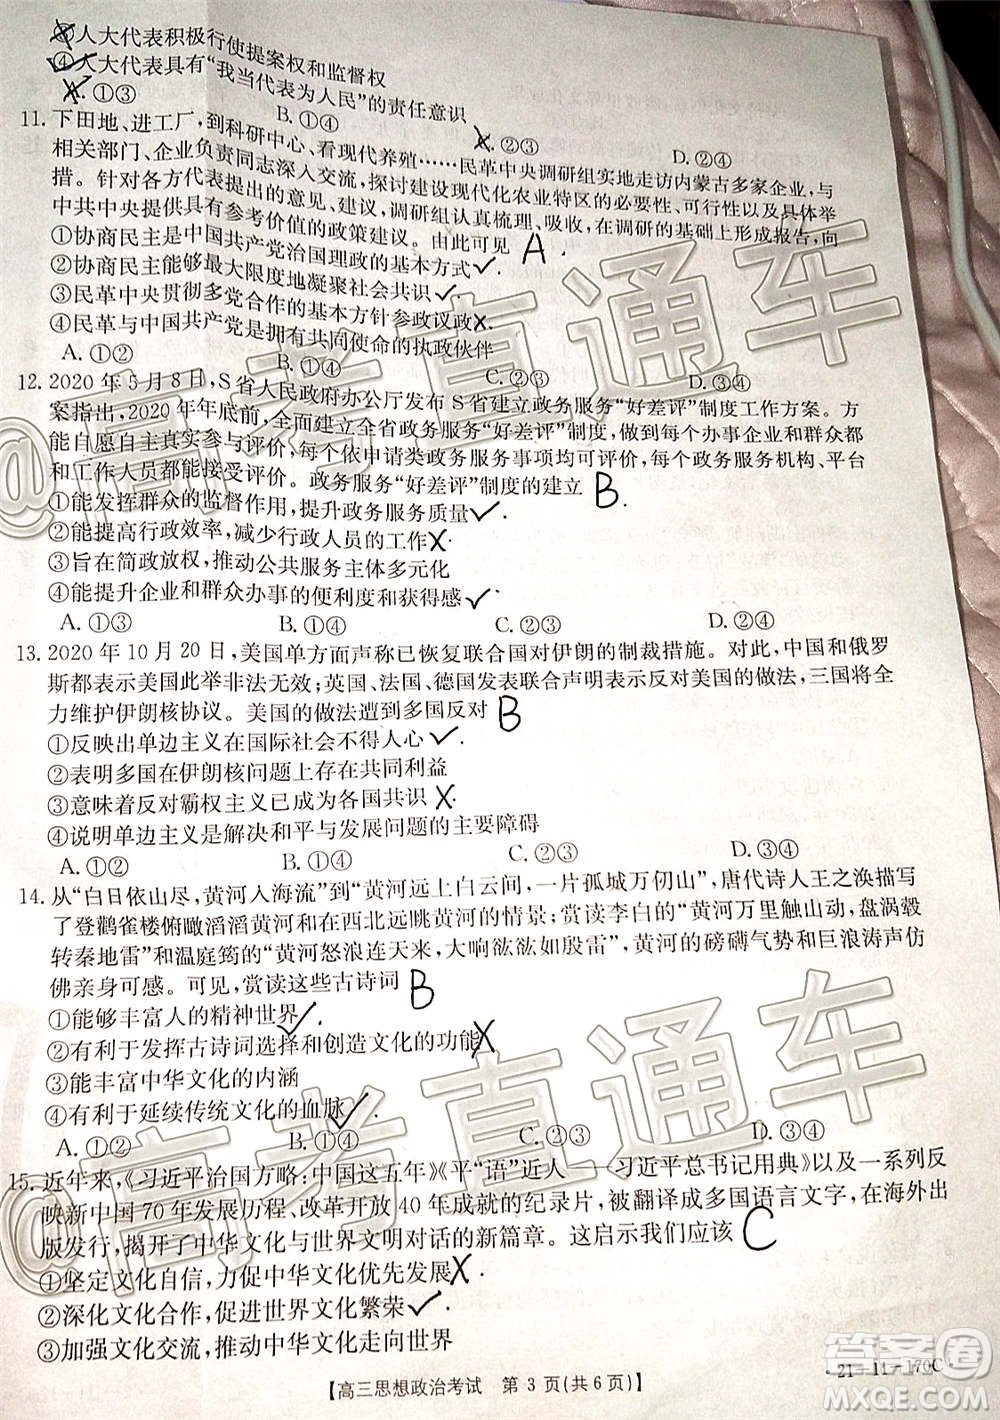 ③人大代表积极行使提案权和监督权
④人大代表具有“我当代表为人民”的责任意识
A.①③ B.①④ C.②③ D.②④
11.下田地、进工厂,到科研中心、看现代养殖……民革中央调研组实地走访内蒙古多家企业,与
相关部门、企业负责同志深入交流,探讨建设现代化农业特区的必要性、可行性以及具体举
措。针对各方代表提出的意见、建议,调研组认真梳理、吸收,在调研的基础上形成报告,向
中共中央提出具有参考价值的政策建议。由此可见 A.
①协商民主是中国共产党治国理政的基本方式
②协商民主能够最大限度地凝聚社会共识
③民革中央贯彻多党合作的基本方针参政议政
④民革与中国共产党是拥有共同使命的执政伙伴
A.①② B.①④ C.②③ D.③④
12.2020年5月8日,S省人民政府办公厅发布S省建立政务服务“好差评”制度工作方案。方
案指出,2020年年底前,全面建立全省政务服务“好差评”制度,做到每个办事企业和群众都
能自愿自主真实参与评价,依申请类政务服务事项均可评价,政务服务机构、平台
和工作人员都能接受评价。政务服务“好差评”制度的建立 B
①能发挥群众的监督作用,提升政务服务质量
②能提高行政效率,减少行政人员的工作
③旨在简政放权,推动公共服务主体多元化
④能提升企业和群众办事的便利度和获得感
A.①③ B.①④ C.②③ D.②④
13.2020年10月20日,美国单方面声称已恢复联合国对伊朗的制裁措施。对此,中国和俄罗
斯都表示美国此举非法无效;英国、法国、德国发表联合声明表示反对美国的做法,决定全
力维护伊朗核协议。美国的做法遭到多国反对 B
①反映出单边主义在国际社会不得人心
②表明多国在伊朗核问题上存在共同利益
③意味着反对霸权主义已成为各国共识
④说明单边主义是解决和平与发展问题的主要障碍
A.①② B.①④ C.②③ D.③④
14.从“白日依山尽,黄河入海流”到“黄河远上白云间,一片孤城万仞山”,唐代诗人王之涣描写
了登鹳雀楼俯瞰滔滔黄河和在西北远眺黄河的情景;赏读李白的“黄河万里触山动,盘涡毂
转秦地雷”和温庭筠的“黄河怒浪连天来,大响谹谹如殷雷”,黄河的磅礴气势和巨浪涛声仿
佛亲身可感。可见,赏读这些古诗词 B
①能够丰富人的精神世界
②有利于发挥古诗词选择和创造文化的功能
③能丰富中华文化的内涵
④有利于延续传统文化的血脉
A.①② B.①④ C.②③ D.③④
15.近年来,《习近平治国方略:中国这五年》《平“语”近人——习近平总书记用典》以及一系列反
映新中国70年发展历程、改革开放40年成就的纪录片,被翻译成多国语言文字,在海外出
版发行,揭开了中华文化与世界文明对话的新篇章。这启示我们应该 C
①坚定文化自信,力促中华文化优先发展
②深化文化合作,促进世界文化繁荣
③加强文化交流,推动中华文化走向世界
【高三思想政治考试 第3页(共6页)】
·21-11-170C·
@高考直通车
@高考直通车
答案圈
MXQE.COM